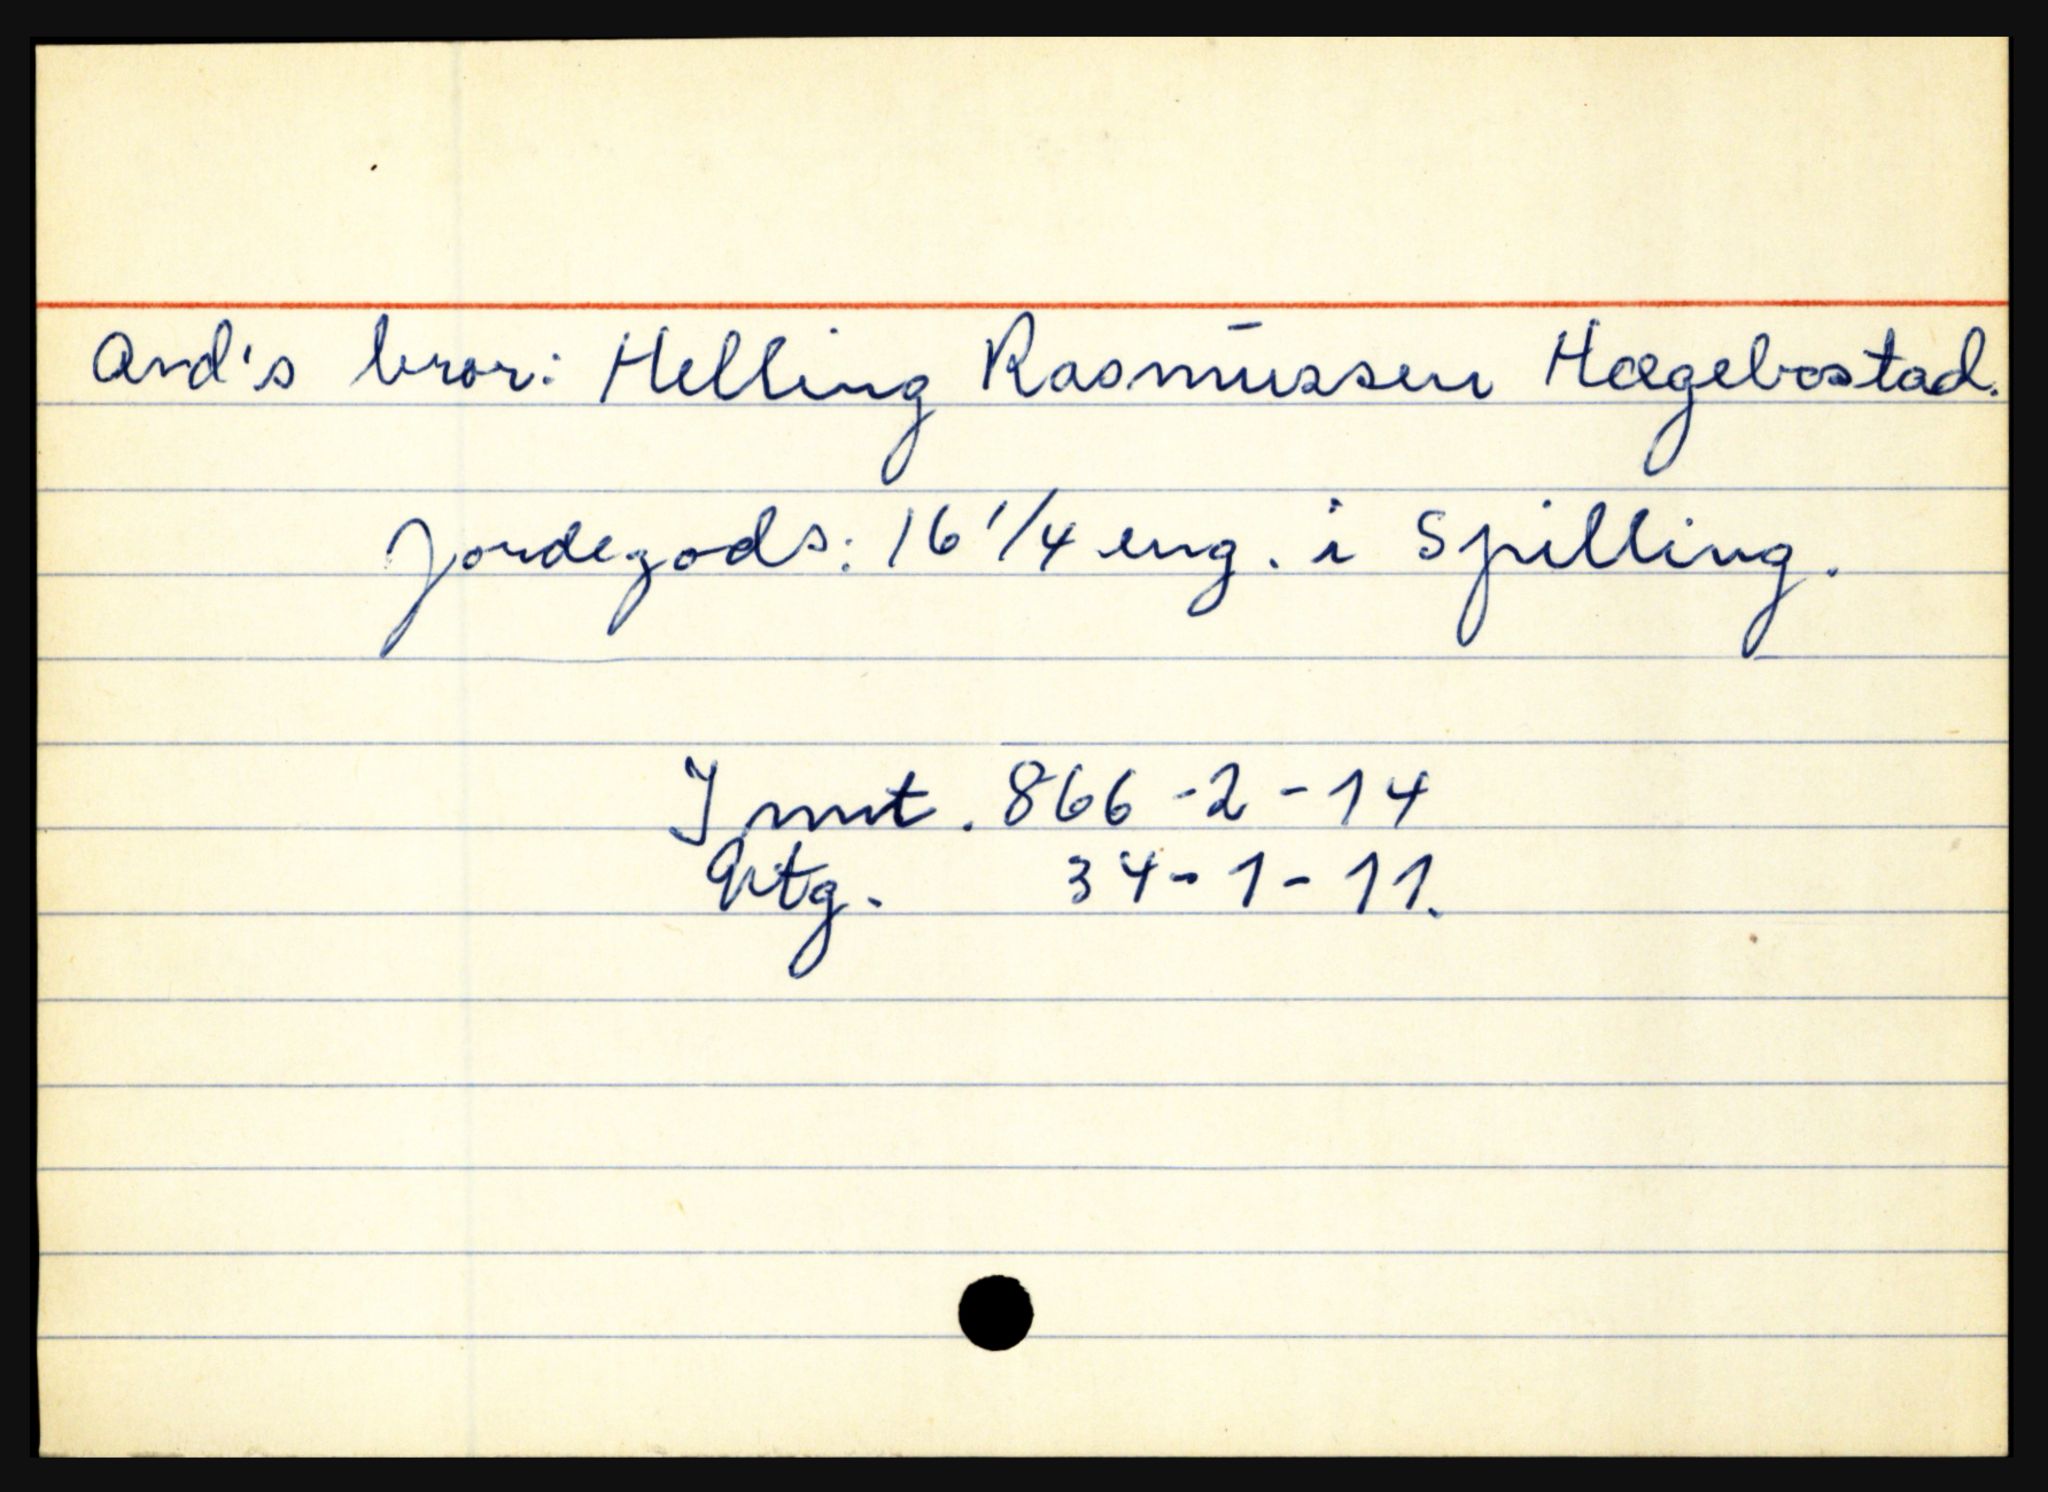 And's bror: Helling Rasmussen Hægebostad.
Jordegods: 16 1/4 eng. i Spilling.
Innt. 866-2-14
Utg. 34-1-11.